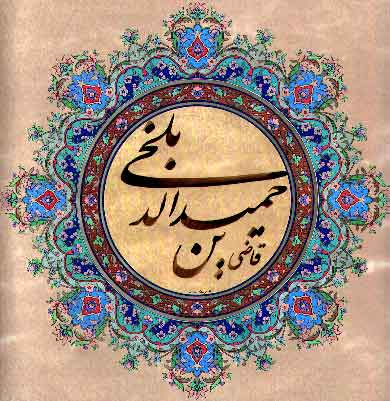 قاضی حمیدالدین بلخی